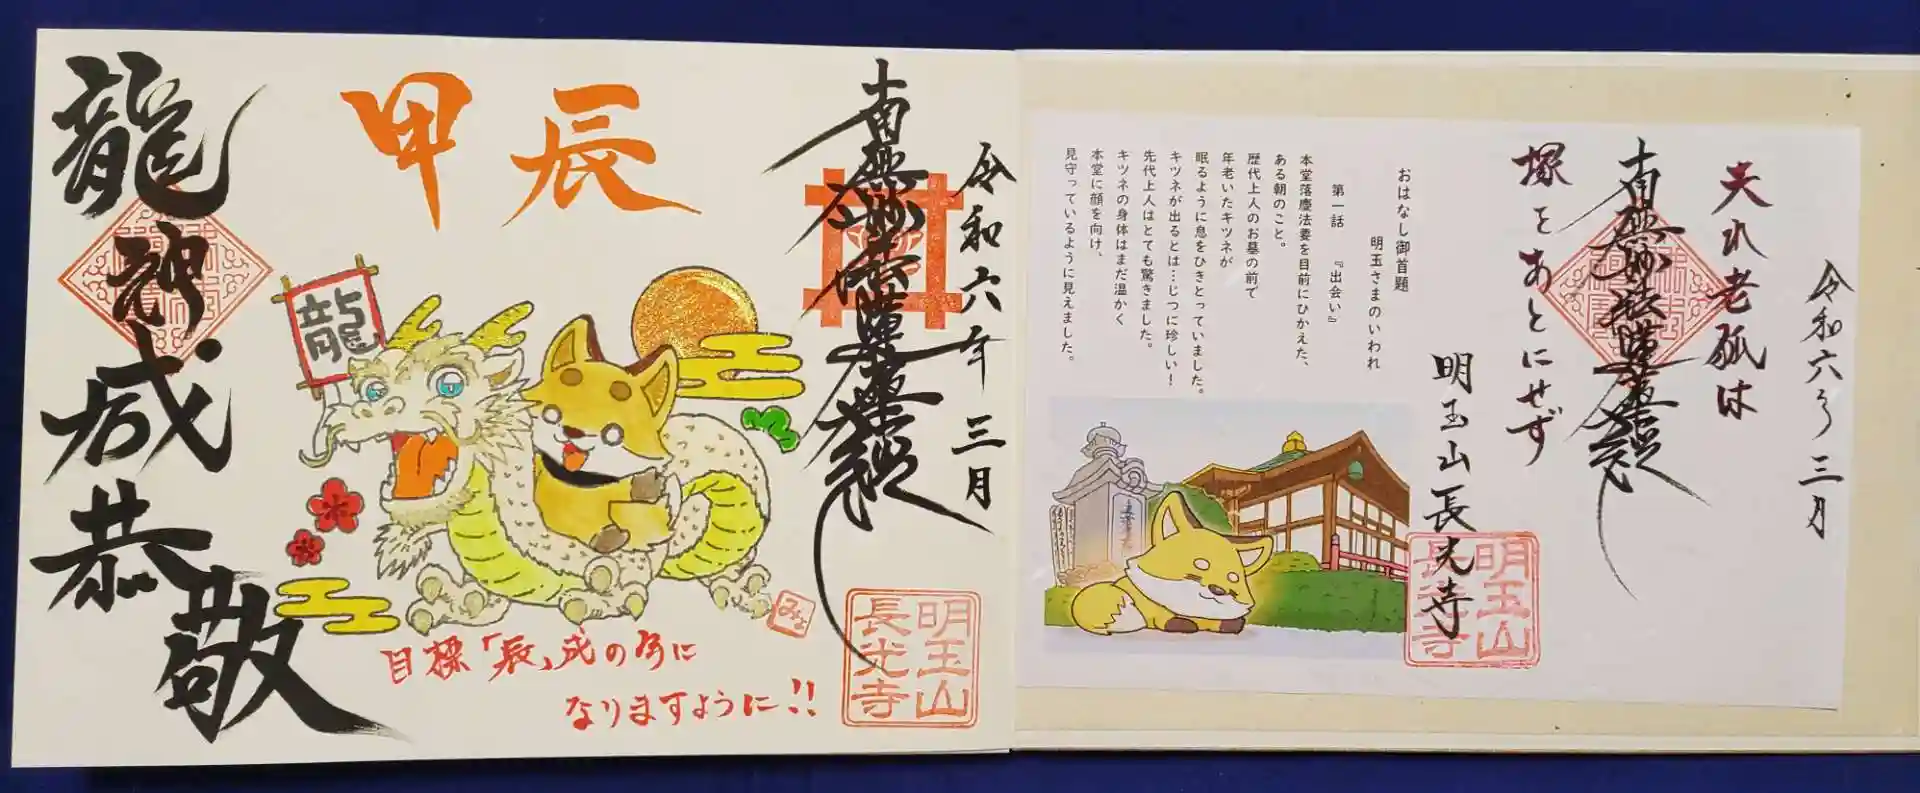 令和六年三月
夫れ老狐は
塚をあとにせず
南無妙法蓮華経
明玉山長光寺
明玉山
長光寺
おはなし御首題
明玉さまのいわれ
第一話 『出会い』
本堂落慶法要を目前にひかえた、
ある朝のこと。
歴代上人のお墓の前で
年老いたキツネが
眠るように息をひきとっていました。
キツネが出るとは…じつに珍しい！
先代上人はとても驚きました。
キツネの身体はまだ温かく
本堂に顔を向け、
見守っているように見えました。
令和六年三月
南無妙法蓮華経
明玉山
長光寺
甲辰
龍
目標「辰」成の年に
なりますように!!
龍神
恭敬